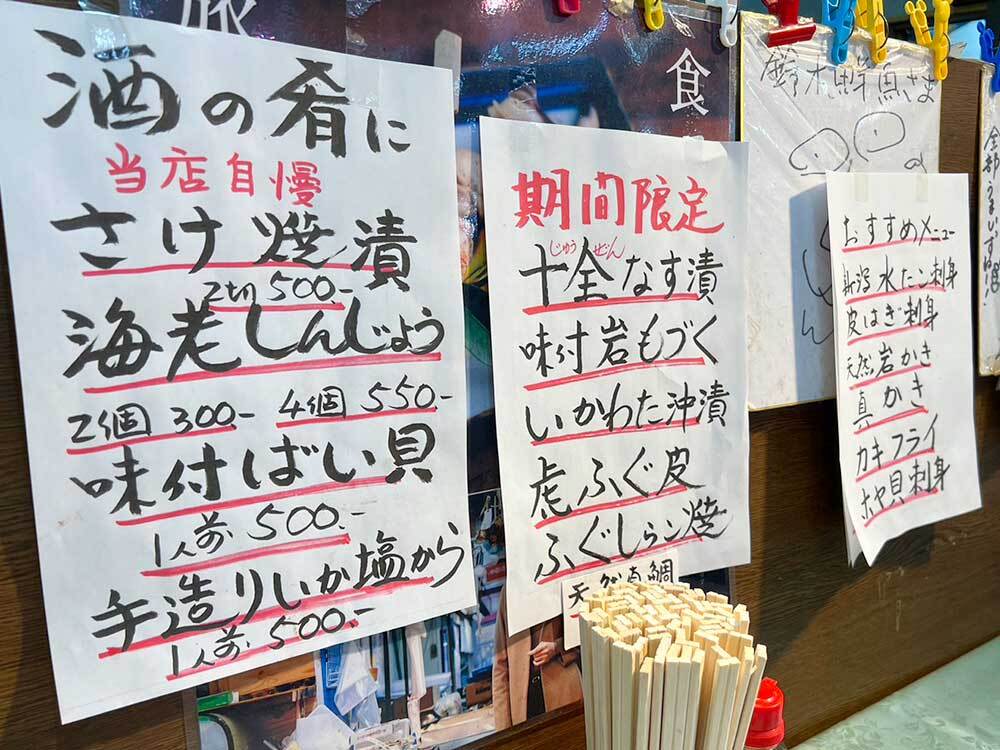 酒の肴に
当店自慢
さけ焼漬
2切 500.-
海老しんじょう
2個 300- 4個 550-
味付ばい貝
1人前 500.-
手造りいか塩から
1人前 500.-
食
期間限定
じゅう ぜん
十全なす漬
味付岩もづく
いかわた沖漬
虎ふぐ皮
ふぐしらこ焼
天然真鯛
おすすめメニュー
新潟 水たこ刺身
皮はぎ刺身
天然岩かき
真かき
カキフライ
ホヤ貝刺身